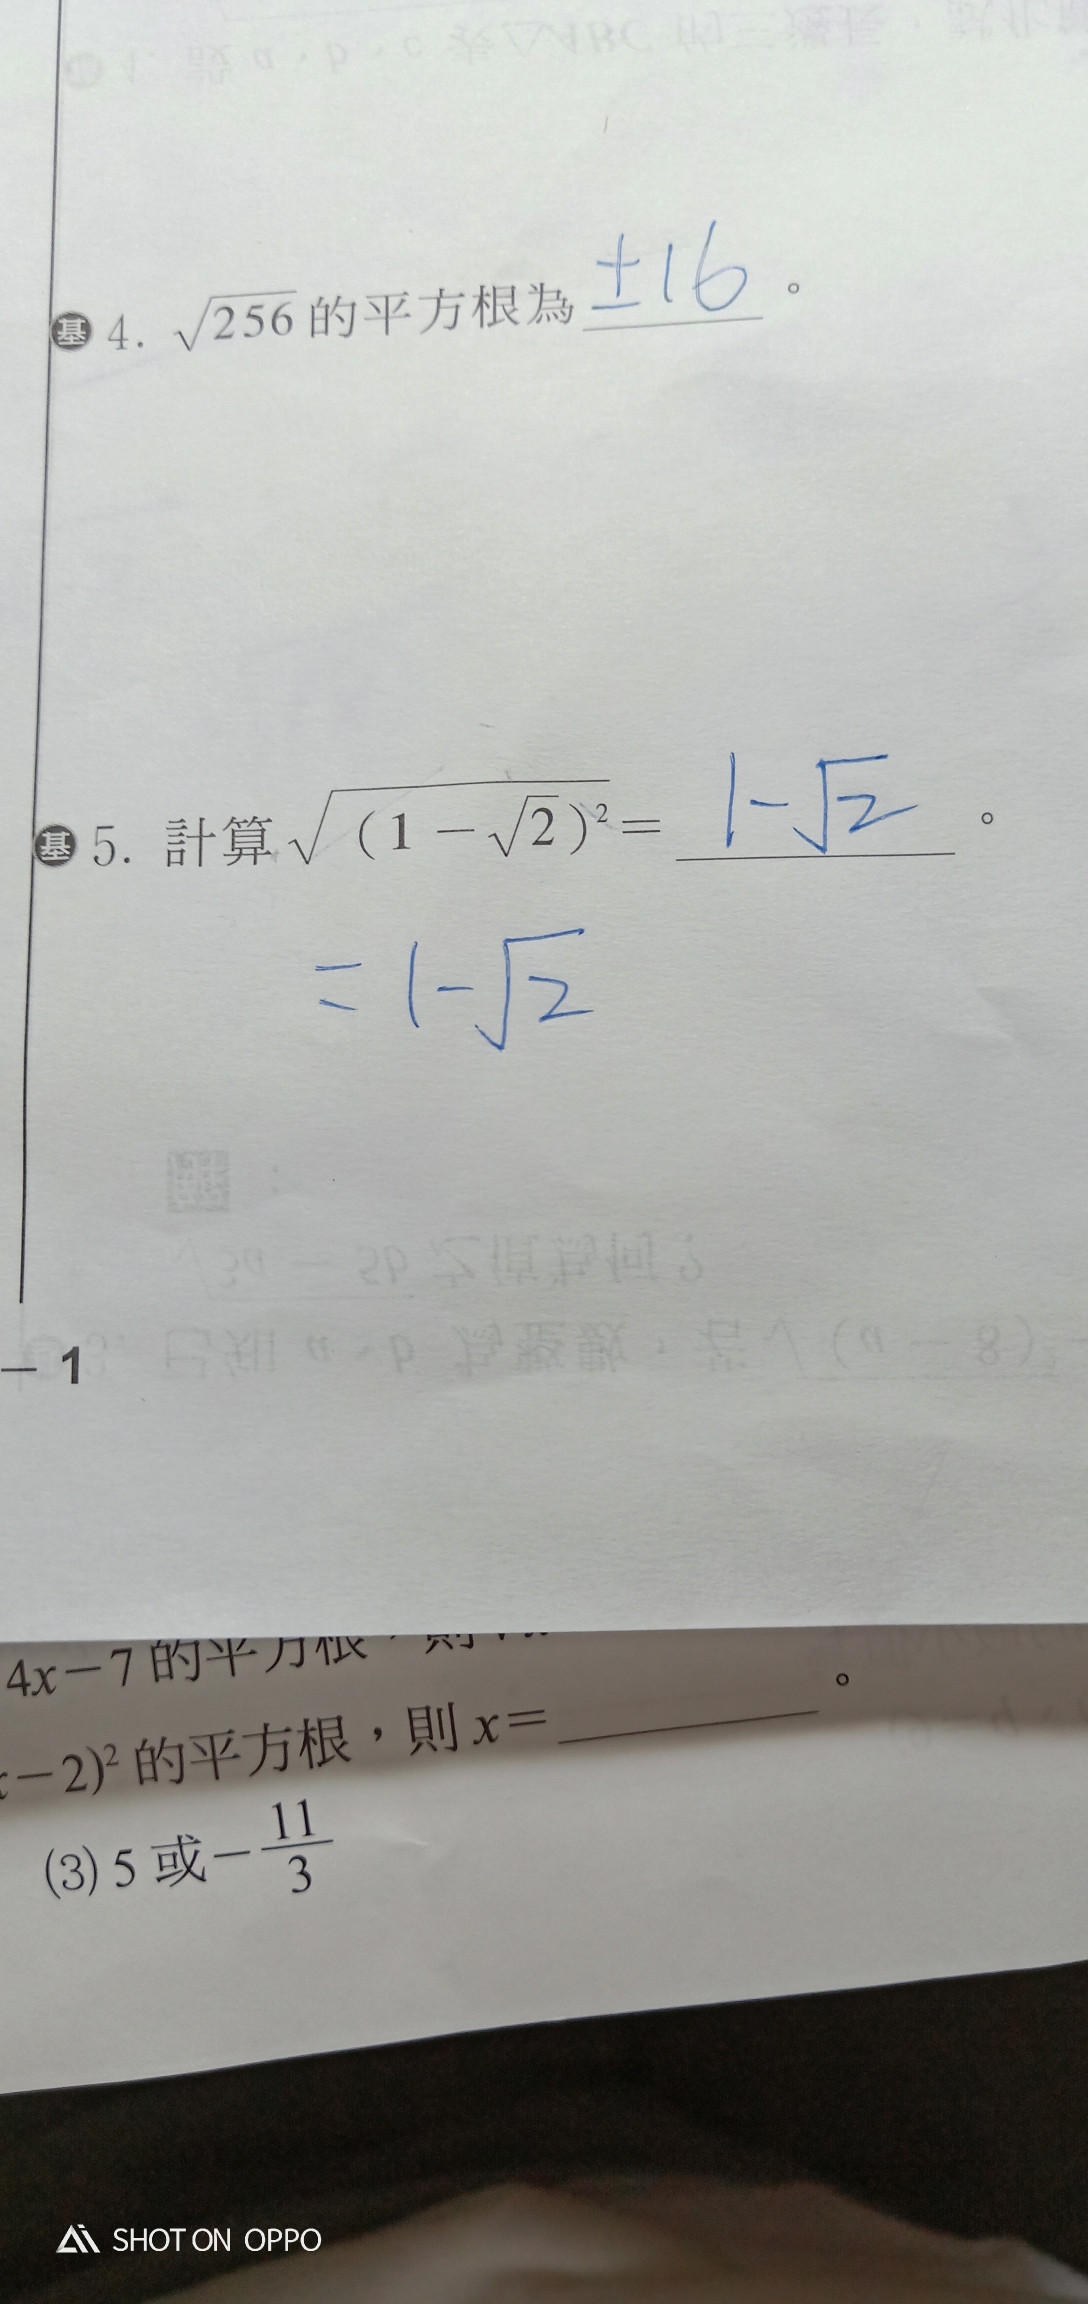 基 4. √256 的平方根為 ±16 。
基 5. 計算 √(1－√2)² = 1-√2 。
= 1-√2
－ 1
4x－7 的平方根，則
－2)² 的平方根，則 x=________。
(3) 5 或－11/3
SHOT ON OPPO